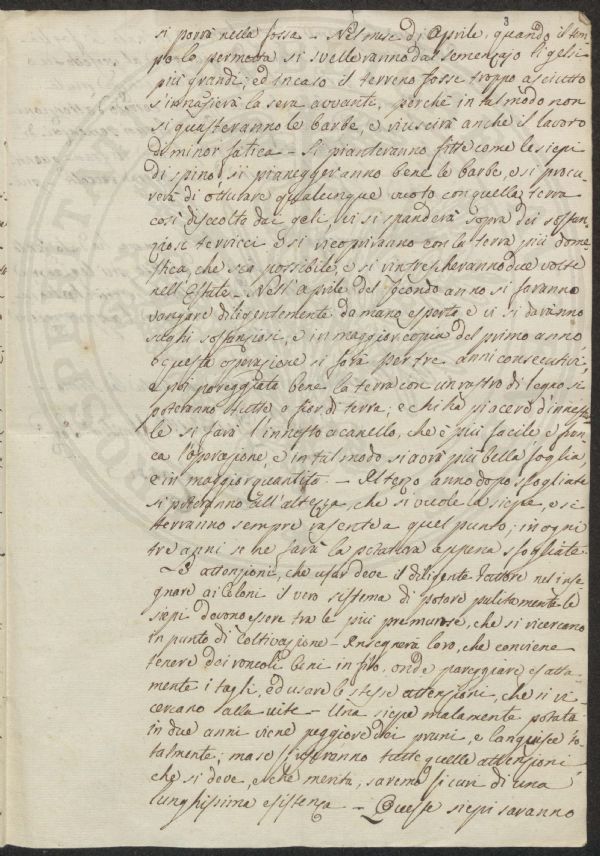 3
si porrà nella fossa - Nel mese di Aprile, quando il tem-
po lo permetta si svelleranno dal semenzajo li gelsi
più grandi; ed in caso il terreno fosse troppo asciutto
s'innafierà la sera avvante, perchè in tal modo non
si guasteranno le barbe, e riuscirà anche il lavoro
di minor fatica - Si pianteranno fitte come le siepi
di spino, si pianeggeranno bene le barbe, e si procu-
rerà di otturare qualunque vuoto con quella terra
così disciolta dai geli, vi si spanderà sopra dei sostan-
ziosi terricci e si ricopriranno con la terra più dome-
stica, che sia possibile, e si rinfrescheranno due volte
nell'Estate - Nell'aprile del secondo anno si faranno
vangare diligentemente da mano esperta e vi si daranno
sughi sostanziosi, e in maggior copia del primo anno
e questa operazione si farà per tre anni consecutivi,
e poi pareggiata bene la terra con un rastro di legno si
poteranno tutte a fior di terra; e chi ha piacere d'innest-
le si farà l'innesto a canello, che è più facile e
l'operazione, e in tal modo si avrà più bella foglia,
e in maggior quantità - Al terzo anno dopo sfogliate
si poteranno all'altezza, che si vuole la siepe, e si
terranno sempre rasente a quel punto; in ogni
tre anni se ne farà la potatura appena sfogliate
Le attenzioni, che usar deve il diligente fattore nel inse-
gnare ai Coloni il vero sistema di potare pulitamente le
siepi devono essere tra le più premurose, che si ricercano
in punto di Coltivazione - Insegnerà loro, che conviene
tenere dei roncoli beni in filo, onde pareggiare esatta-
mente i tagli, ed usare le stesse attenzioni, che si ri-
cercano alla vite - Una siepe malamente potata
in due anni viene peggiore dei pruni, e languisce to-
talmente; ma se si useranno tutte quelle attenzioni
che si deve, e che merita, saremo sicuri di una
lunghissima esistenza - Queste siepi saranno